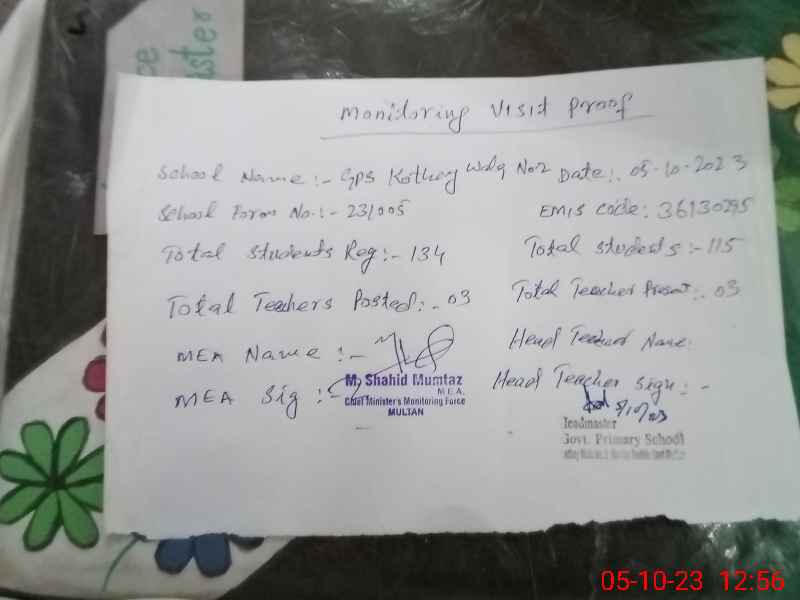 Monitoring Visit Proof
School Name :- GPS Kothay Wala No 2 Date:. 05-10-2023
School Form No. :- 231005
EMIS Code: 36130295
Total Students Reg :- 134
Total Students :- 115
Total Teachers Posted :. 03
Total Teacher Present :. 03
MEA Name :-
Head Teacher Name:
MEA Sig :-
Head Teacher Sign : -
M. Shahid Mumtaz
M.E.A.
Chief Minister's Monitoring Force
MULTAN
5/10/23
Headmaster
Govt. Primary School
05-10-23 12:56